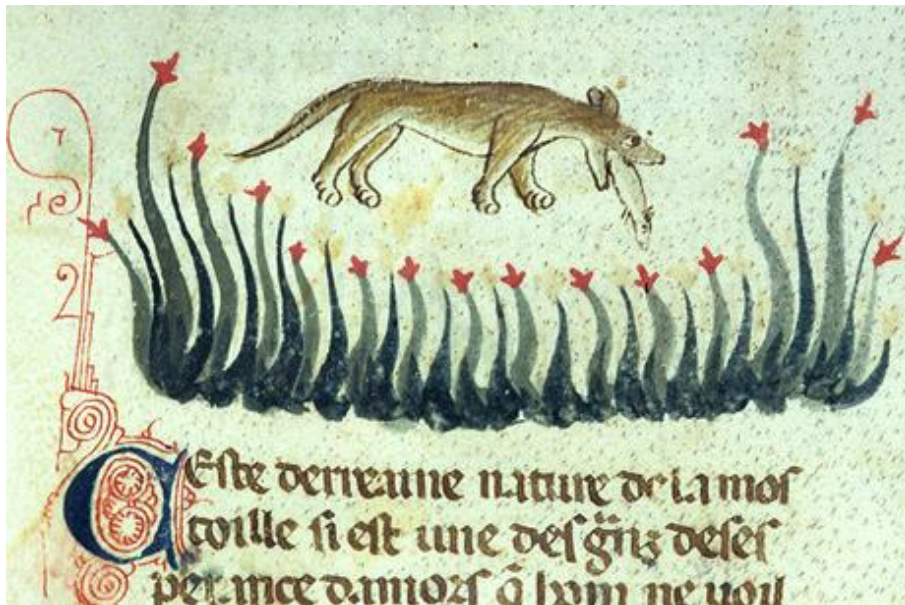 CEste derreaine nature de la mos
toille si est une des g̃nz deses
perance damors q̃ hom ne uoil